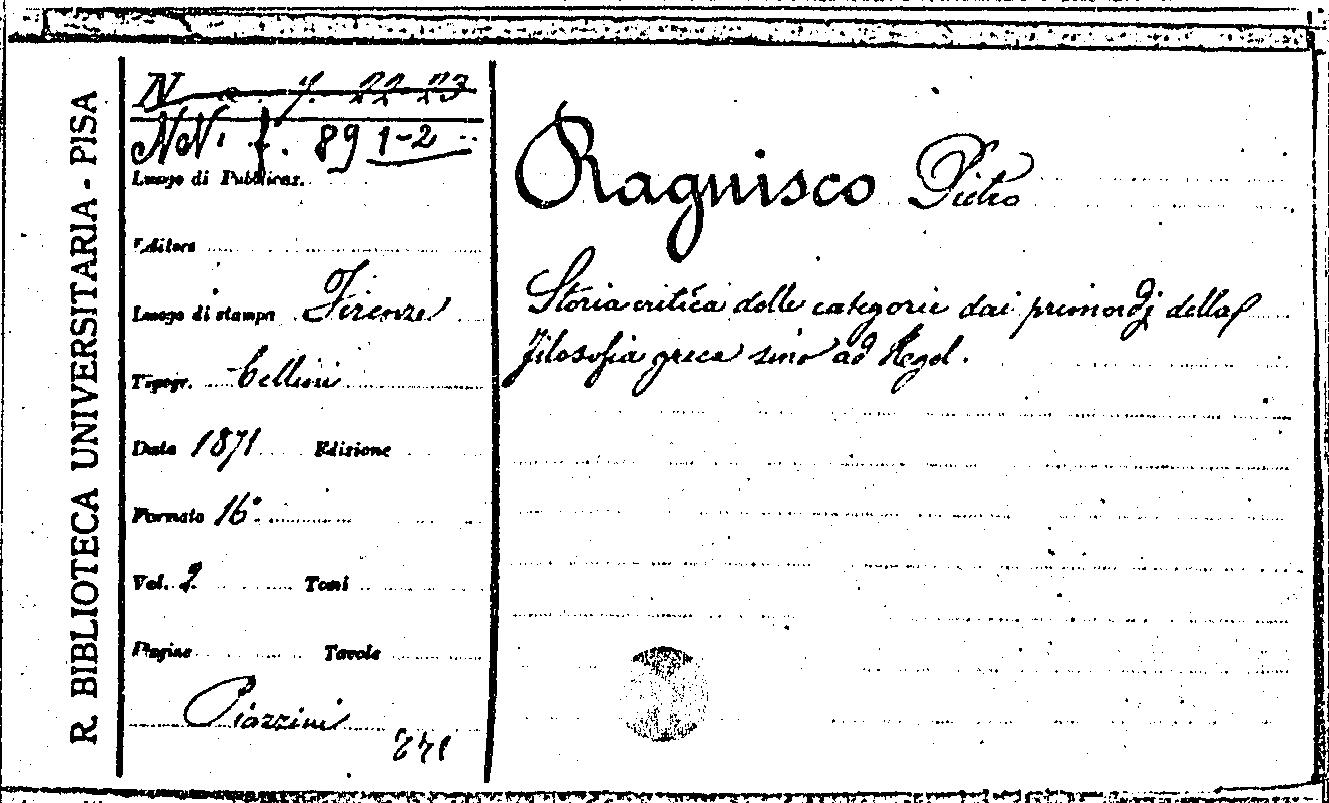 R. BIBLIOTECA UNIVERSITARIA - PISA
N a. 7. 22-23
NN. f. 89 1-2
Luogo di Pubblicaz.
Editore
Luogo di stampa Firenze
Tipogr. Cellini
Data 1871 Edizione
Formato 16°
Vol. 2 Tomi
Pagine Tavole
Piazzini
Ragnisco Pietro
Storia critica delle categorie dai primordj della
filosofia greca sino ad Hegel.